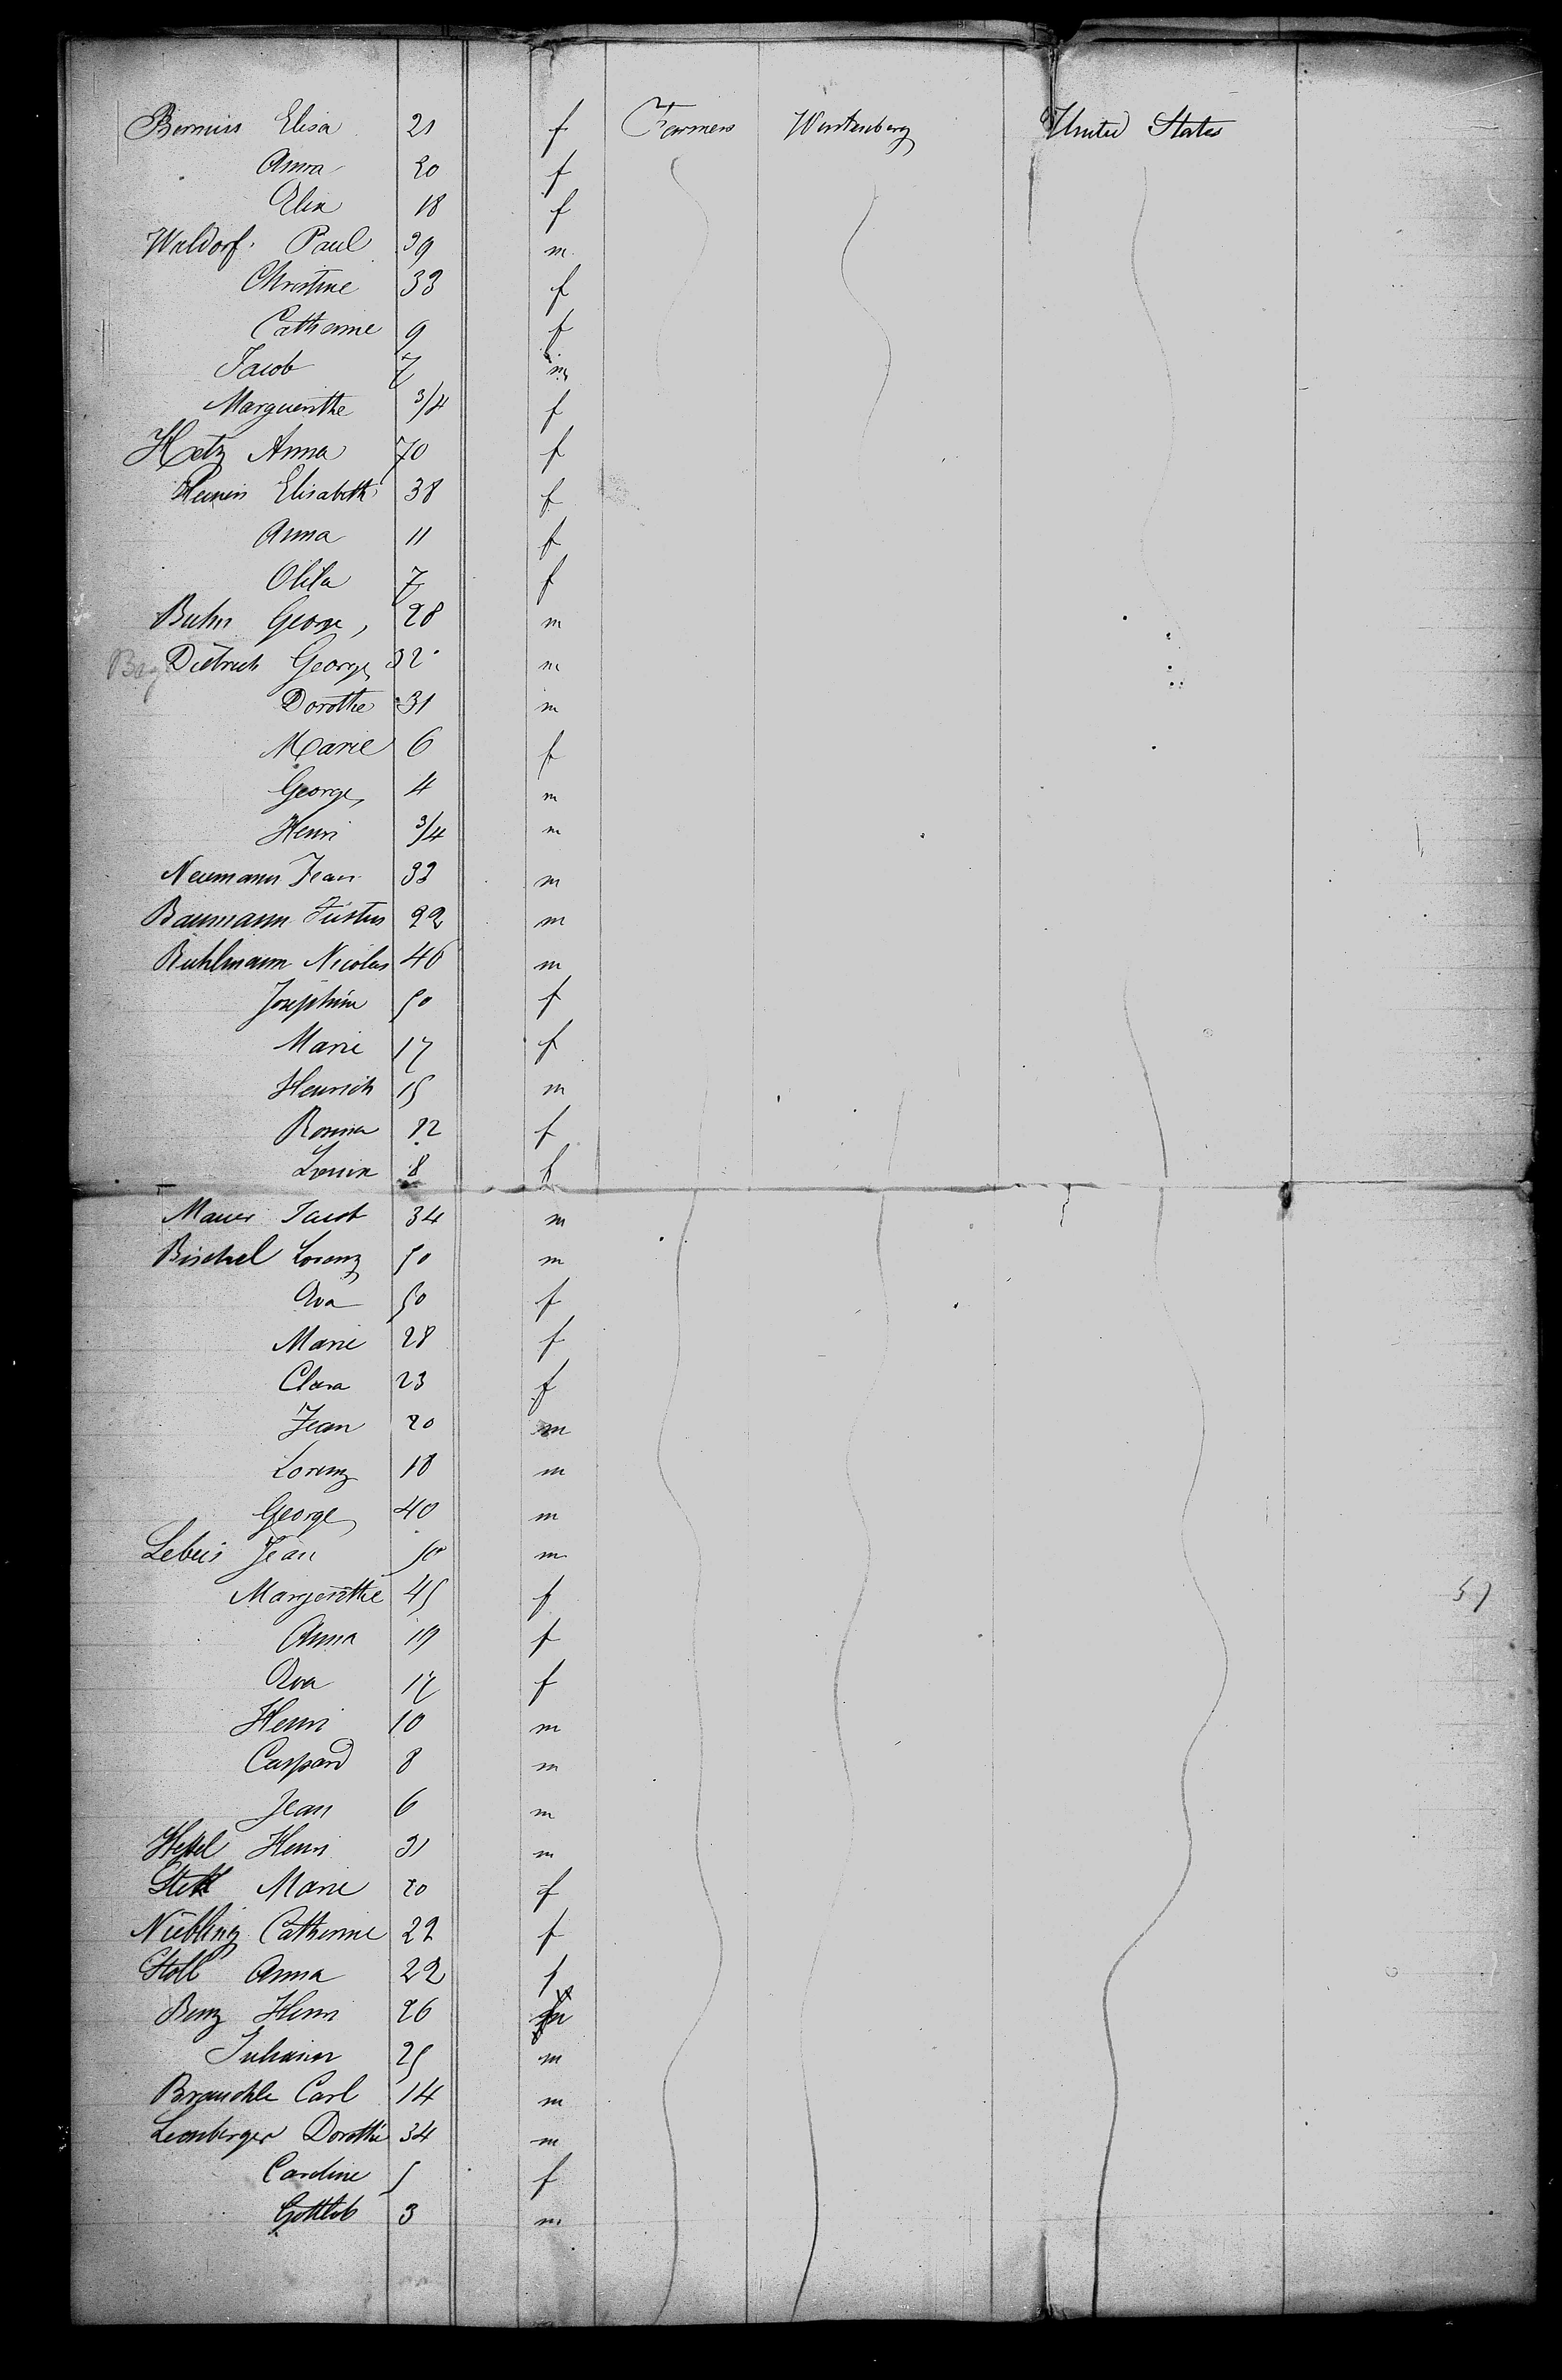 Berniss Elisa 21 f Farmers Wurtenberg United States
Anna 20 f
Elin 18 f
Waldorf. Paul 39 m
Christine 33 f
Catherine 9 f
Jacob 7 m
Marguerithe 3/4 f
Hetz Anna 70 f
Elisabeth 38 f
Anna 11 f
7 f
Buhn George, 28 m
Dietrich George 32 m
Dorothe 31 m
Marie 6 f
George 4 m
Henri 3/4 m
Neumann Jean 33 m
Baumann Justus 22 m
Ruhlmann Nicolas 46 m
Josephine 50 f
Marie 17 f
Heinrich 15 m
Rosina 12 f
Louise 8 f
Mauer Jacob 34 m
Bischel Lorenz 50 m
Eva 50 f
Marie 28 f
Clara 23 f
Jean 20 m
Lorenz 18 m
George 40 m
Lebeis Jean 50 m
Margerithe 45 f
Anna 19 f
Eva 17 f
Henri 10 m
Caspard 8 m
Jean 6 m
Henri 31 m
Marie 20 f
Niebling Catherine 22 f
Stoll Anna 22 f
Benz Henri 26 m
25 m
Brauchle Carl 14 m
Leonberger Dorothe 34 m
Caroline 5 f
Gottlob 3 m